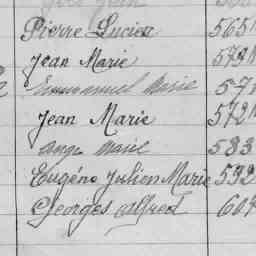 Pierre Lucien 565
Jean Marie 572
Emmanuel Marie 57
Jean Marie 572
Ange Marie 583
Eugéne Julien Marie 592
Georges Alfred 607